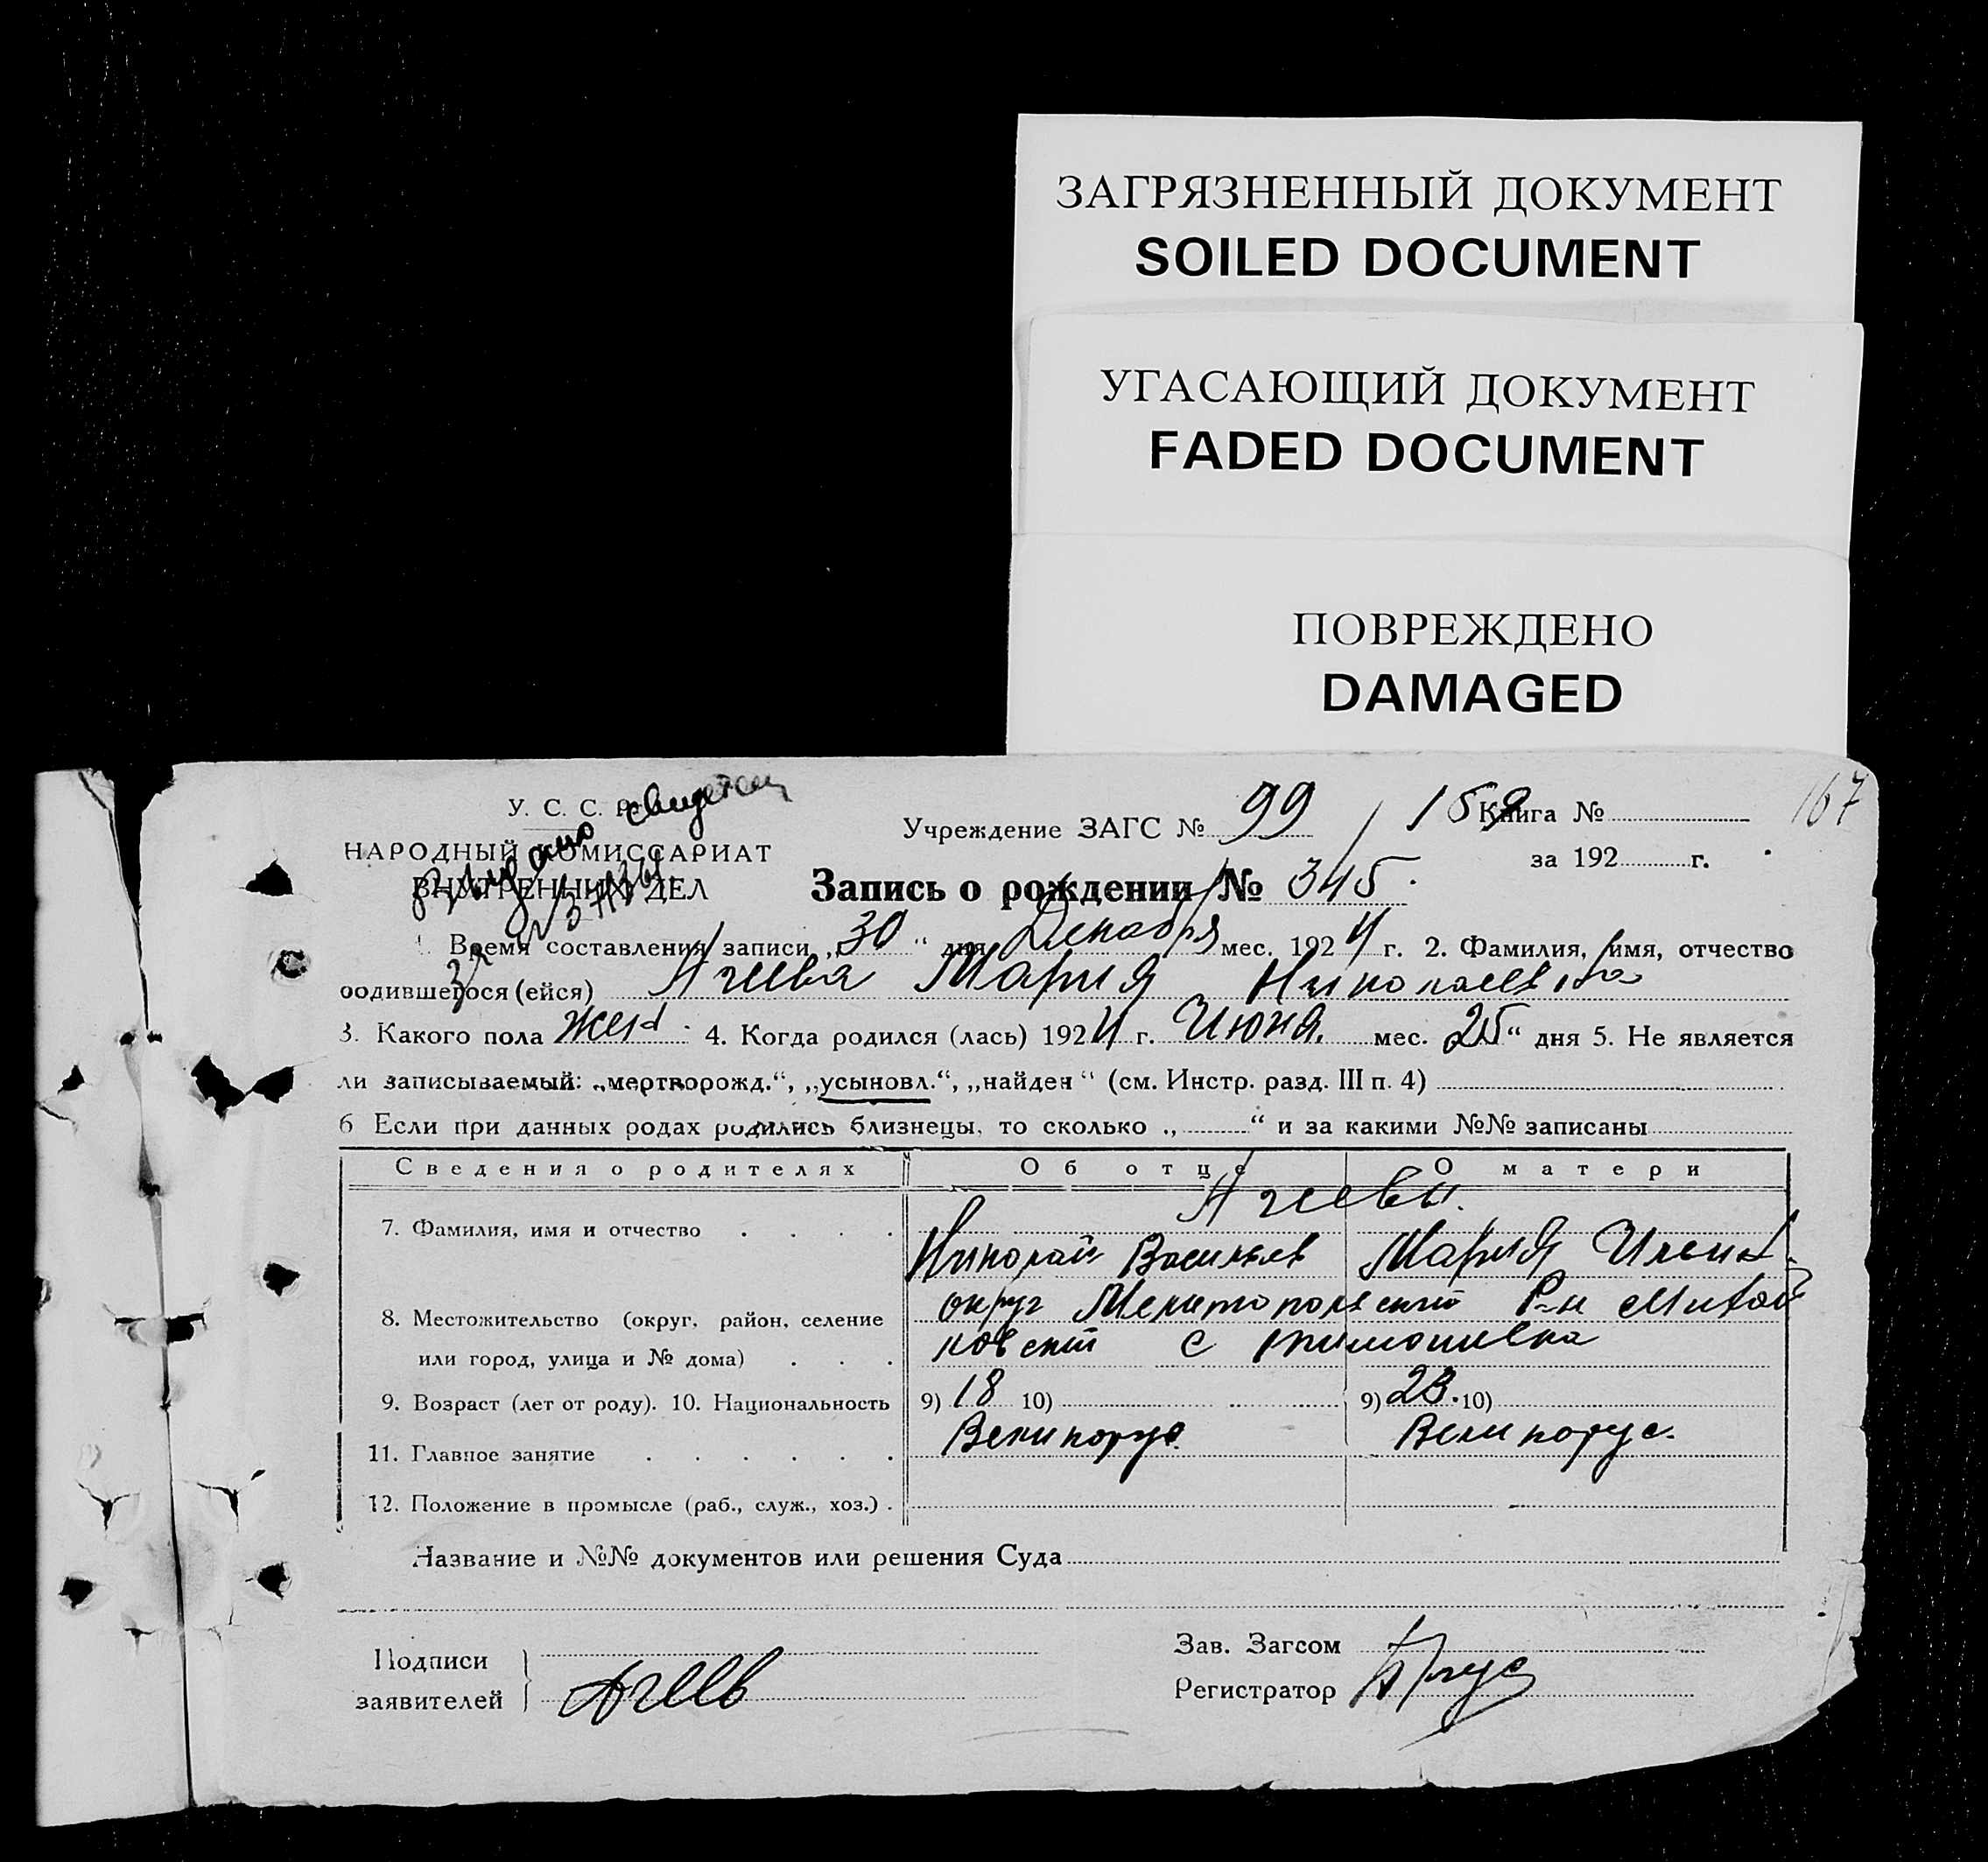 ЗАГРЯЗНЕННЫЙ ДОКУМЕНТ
SOILED DOCUMENT
УГАСАЮЩИЙ ДОКУМЕНТ
FADED DOCUMENT
ПОВРЕЖДЕНО
DAMAGED
167
У. С. С. Р.
НАРОДНЫЙ КОМИССАРИАТ
ВНУТРЕННИХ ДЕЛ
Учреждение ЗАГС № 99 / 159 Книга №
за 192 г.
Запись о рождении № 345.
Время составления записи „30“ дня Декабря мес. 1924 г. 2. Фамилия, имя, отчество
родившегося (ейся) Агеева Мария Николаевна
3. Какого пола жен. 4. Когда родился (лась) 1924 г. Июня мес. 25“ дня 5. Не является
ли записываемый: „мертворожд.“, „усыновл.“, „найден“ (см. Инстр. разд. III п. 4)
6 Если при данных родах родились близнецы, то сколько „ “ и за какими №№ записаны
Сведения о родителях Об отце О матери
Агеевы.
7. Фамилия, имя и отчество
Николай Васильев Мария Ильин.
8. Местожительство (округ, район, селение
или город, улица и № дома)
округ Мелитопольский Р-н
с Тимошевка
9. Возраст (лет от роду). 10. Национальность 9) 18 10) 9) 23. 10)
Великорус. Великорус.
11. Главное занятие
12. Положение в промысле (раб., служ., хоз.)
Название и №№ документов или решения Суда
Подписи
заявителей
Агеев
Зав. Загсом
Регистратор